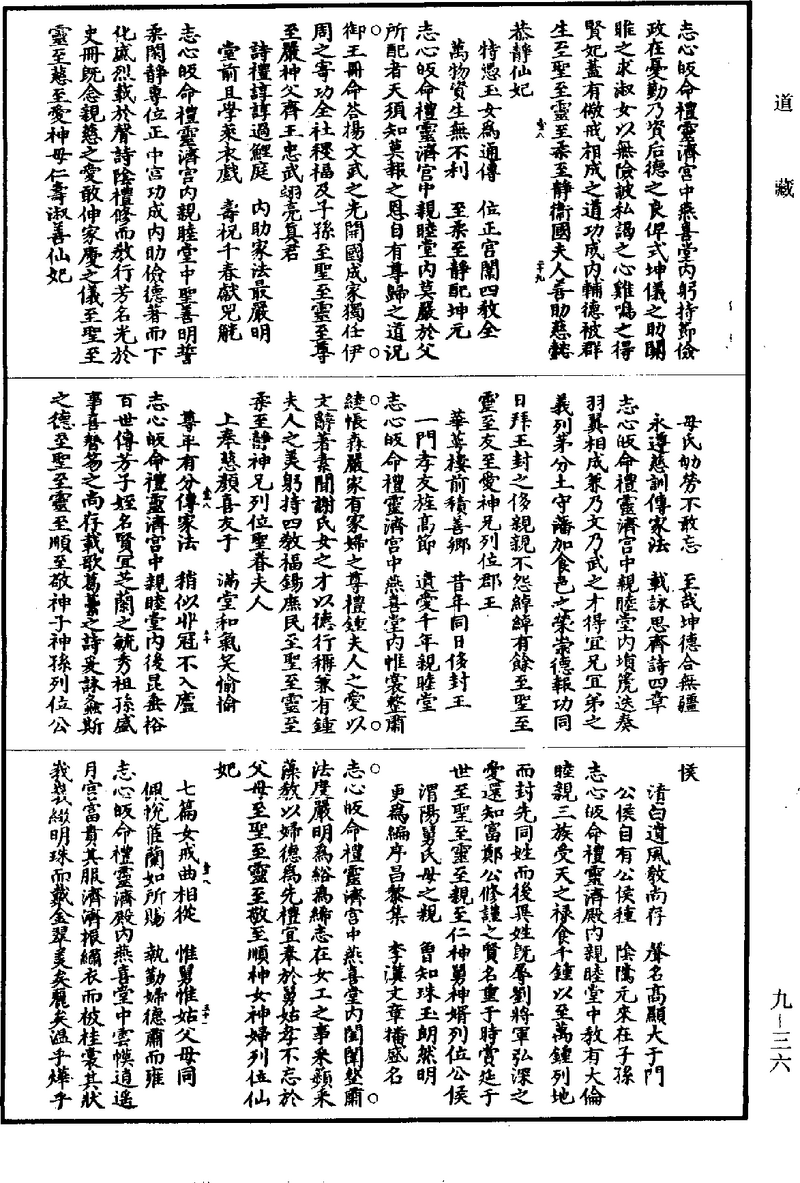 道藏
志心皈命禮靈濟宮中燕喜堂內躬持節儉
政在憂勤乃資后德之良俾式坤儀之助關
雎之求淑女以無險詖私謁之心雞鳴之得
賢妃蓋有儆戒相成之道功成內輔德被群
生至聖至靈至柔至靜衛國夫人善助慈懿
恭靜仙妃
特愬玉女為通傳　位正宮闈四教全
萬物資生無不利　至柔至靜配坤元
志心皈命禮靈濟宮中親睦堂內莫嚴於父
所配者天須知莫報之恩自有尊歸之道況
御王冊命荅揚文武之光開國成家獨任伊
周之寄功全社稷福及子孫至聖至靈至尊
至嚴神父齊王忠武翊亮真君
詩禮諄諄過鯉庭　內助家法最嚴明
堂前且學萊衣戲　壽祝千春獻兕觥
志心皈命禮靈濟宮內親睦堂中聖善明哲
柔閑靜專位正中宮功成內助儉德著而下
化威烈載於聲詩陰禮脩而教行芳名光於
史冊既念親慈之愛敢伸家慶之儀至聖至
靈至慈至愛神母仁壽淑善仙妃
母氏劬勞不敢忘　至哉坤德合無疆
永遵慈訓傳家法　載詠思齊詩四章
志心皈命禮靈濟宮中親睦堂內塤箎迭奏
羽翼相成兼乃文乃武之才得宜兄宜弟之
義列茅分土守藩加食邑之榮崇德報功同
日拜王封之侈親親不怨綽綽有餘至聖至
靈至友至愛神兄列位郡王
華萼樓前積善鄉　昔年同日侈封王
一門孝友旌高節　遺愛千年親睦堂
志心皈命禮靈濟宮中燕喜堂內帷裳整肅
綾帳森嚴家有冢婦之尊禮鍾夫人之愛以
文辭著素聞謝氏女之才以德行稱兼有鍾
夫人之美躬持四教福錫庶民至聖至靈至
柔至靜神兄列位聖眷夫人
上奉慈顏喜友于　滿堂和氣笑愉愉
尊卑有分傳家法　稍似非冠不入廬
志心皈命禮靈濟宮中親睦堂內後昆垂裕
百世傳芳子姪名賢宜芝蘭之毓秀祖孫盛
事喜簪笏之尚存載歌葛藟之詩爰詠螽斯
之德至聖至靈至順至敬神子神孫列位公
侯
清白遺風教尚存　聲名高顯大于門
公侯自有公侯種　陰騭元來在子孫
志心皈命禮靈濟殿內親睦堂中教有大倫
睦親三族受天之祿食千鍾以至萬鍾列地
而封先同姓而後異姓既辱劉將軍弘深之
愛還知富鄭公修謹之賢名重于時賞延于
世至聖至靈至親至仁神舅神婿列位公侯
渭陽舅氏母之親　曾知珠玉朗然明
更為編序昌黎集　李漢文章播盛名
志心皈命禮靈濟宮中燕喜堂內閨閫整肅
法度嚴明為綌為絺志在女工之事采蘋采
藻教以婦德為先禮宜奉於舅姑孝不忘於
父母至聖至靈至敬至順神女神婦列位仙
妃
七篇女戒曲相從　惟舅惟姑父母同
佩帨茝蘭如所賜　執勤婦德肅而雍
志心皈命禮靈濟殿內燕喜堂中雲幙逍遙
月宮富貴其服濟濟振繡衣而被桂裳其狀
我我綴明珠而戴金翠美矣麗矣溫乎燁乎
九－三六